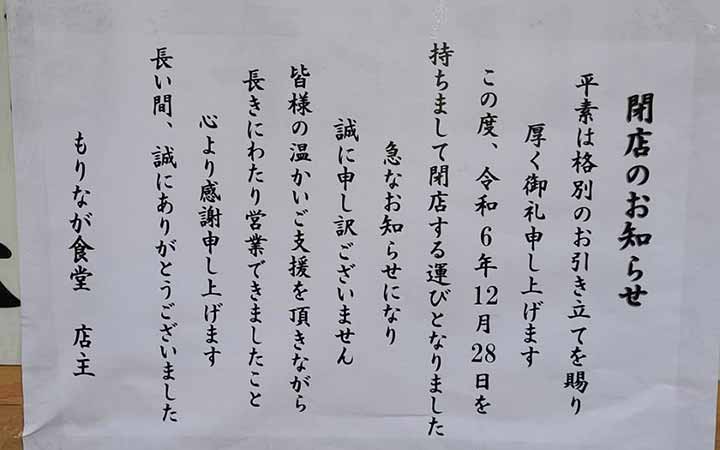 閉店のお知らせ
平素は格別のお引き立てを賜り
厚く御礼申し上げます
この度、令和6年12月28日を
持ちまして閉店する運びとなりました
急なお知らせになり
誠に申し訳ございません
皆様の温かいご支援を頂きながら
長きにわたり営業できましたこと
心より感謝申し上げます
長い間、誠にありがとうございました
もりなが食堂 店主